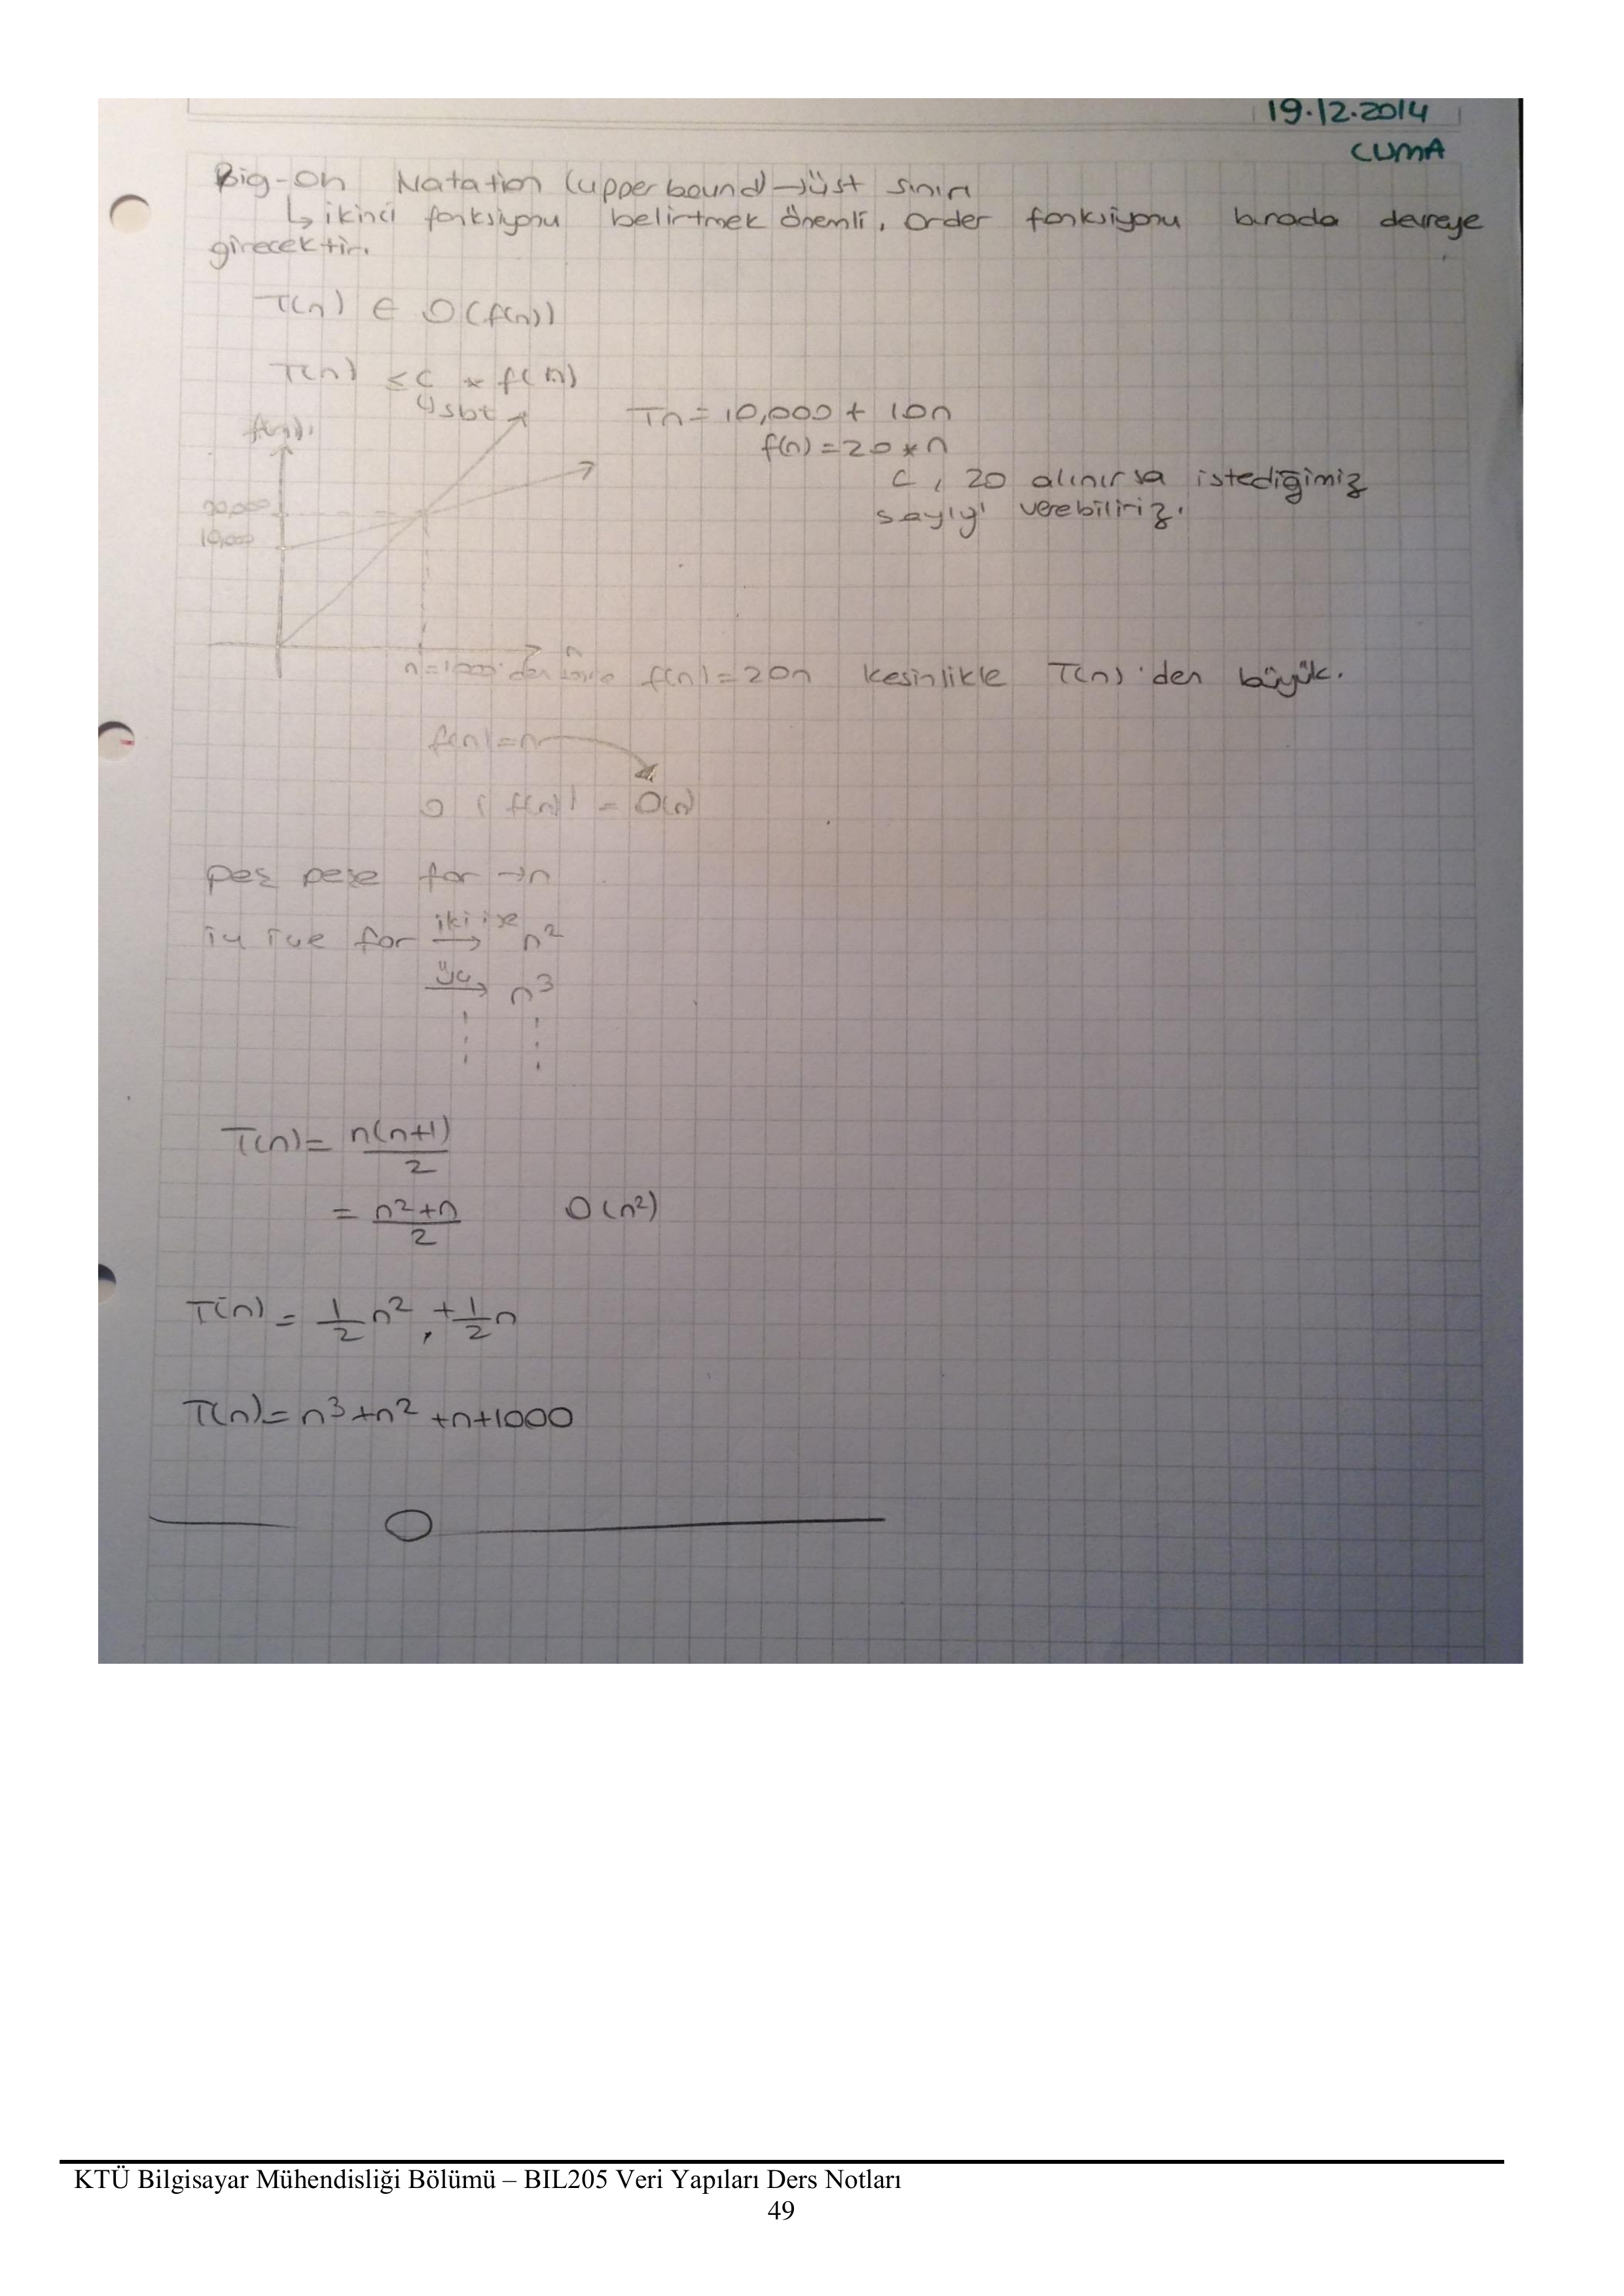 19.12.2014
CUMA
Big-oh Natation (upper bound) → üst sınır
↳ ikinci fonksiyonu belirtmek önemli, order fonksiyonu burada devreye
girecektir.
T(n) ∈ O(f(n))
T(n) ≤ c * f(n)
↳ sbt
f(n)
Tn = 10,000 + 10n
f(n) = 20 * n
c, 20 alınırsa istediğimiz
sayıyı verebiliriz.
20,000
10,000
n
n=1000'den sonra f(n) = 20n kesinlikle T(n)'den büyük.
f(n) = n
O(f(n)) = O(n)
peş peşe for → n
iç içe for iki ise → n²
üç → n³
T(n) = n(n+1)/2
= n²+n/2 O(n²)
T(n) = 1/2 n² + 1/2 n
T(n) = n³+n²+n+1000
KTÜ Bilgisayar Mühendisliği Bölümü – BIL205 Veri Yapıları Ders Notları
49